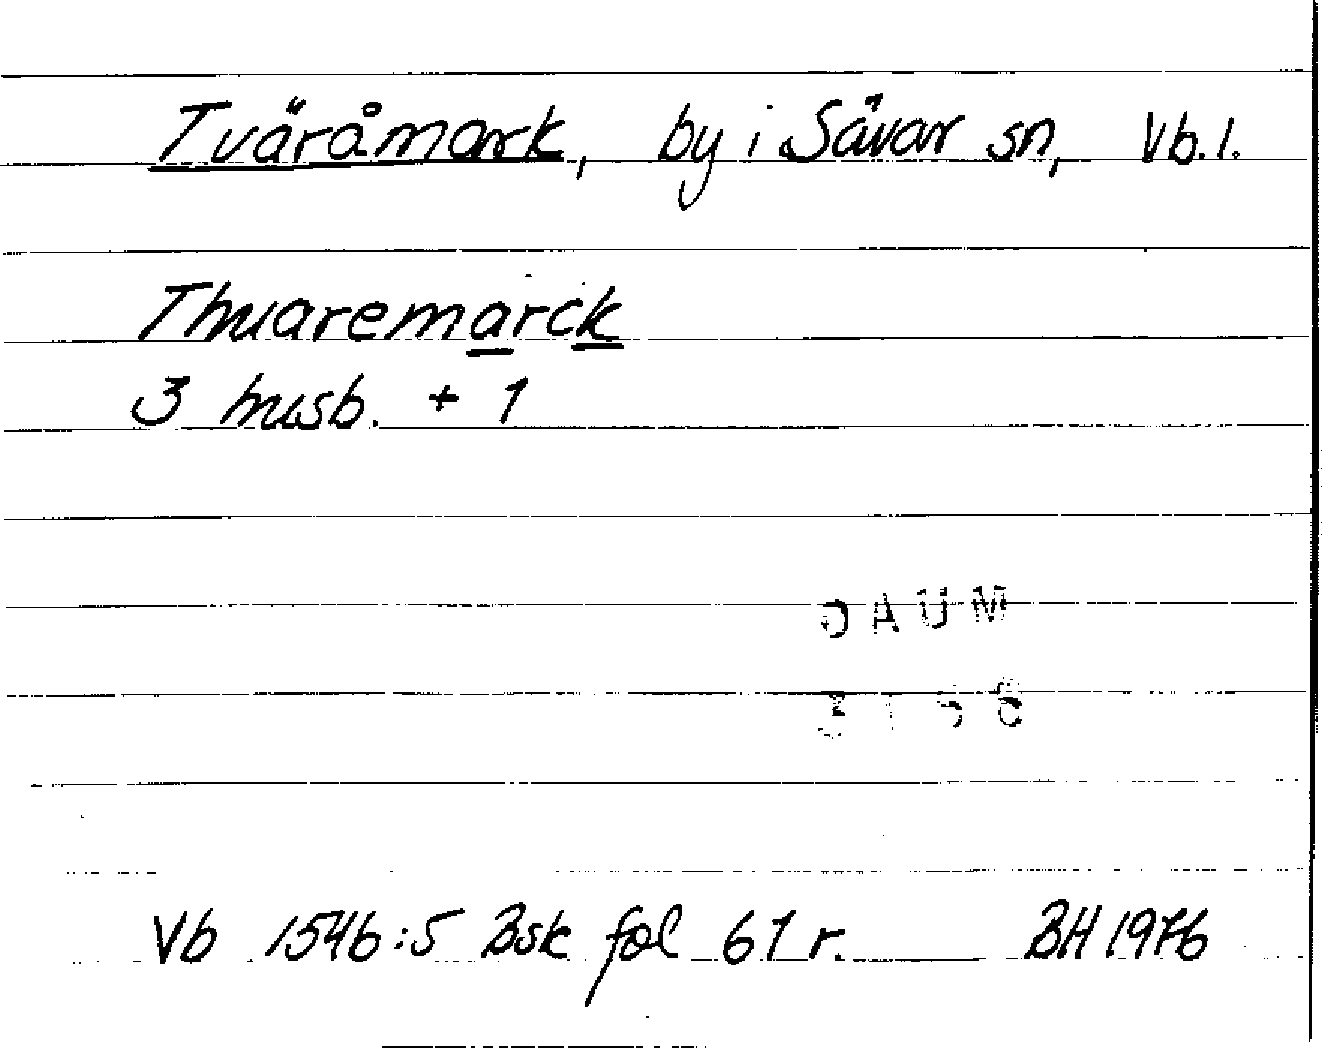 Tväråmark, by i Sävar sn, Vb. l.
Thuaremarck
3 husb. + 1
DAUM
Vb 1546:5 Bsk fol 61 r. BH 1976